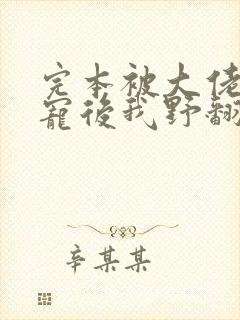 完本被大佬
寵後我野翻
辛某某